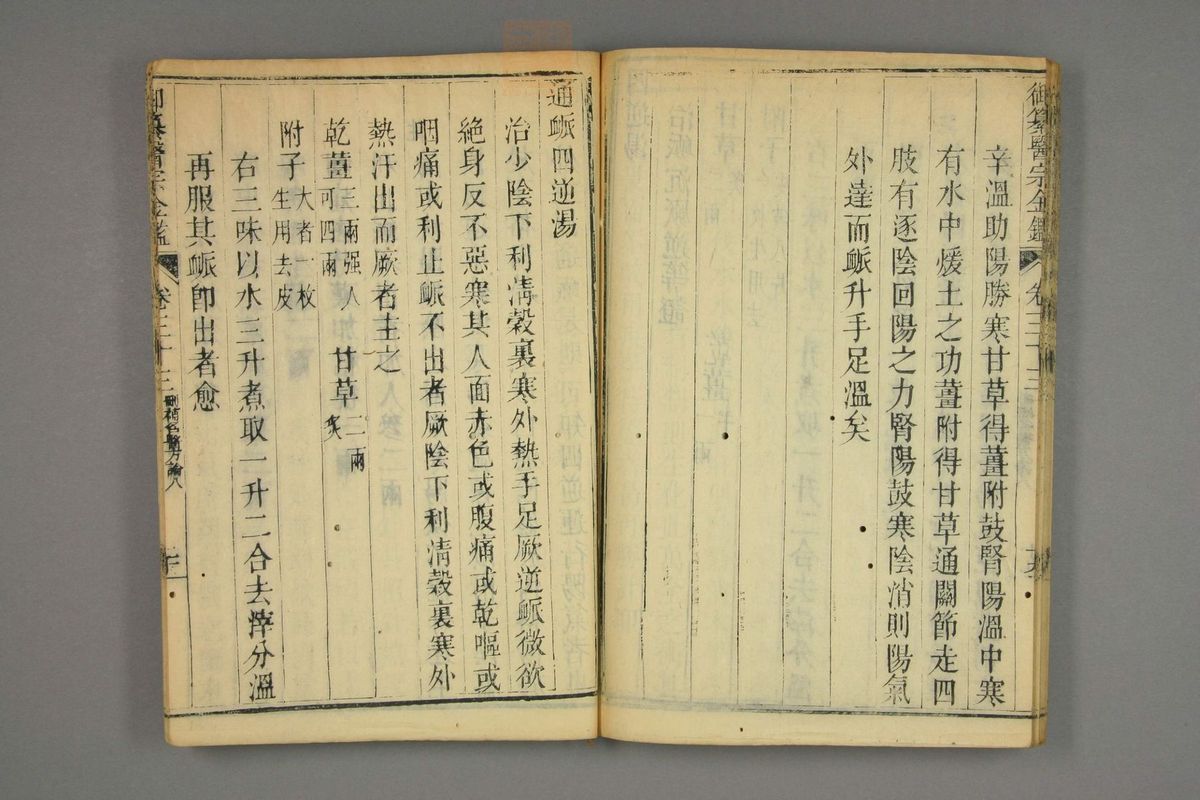 御纂醫宗金鑑 卷三十三
辛溫助陽勝寒甘草得薑附鼓腎陽溫中寒
有水中煖土之功薑附得甘草通關節走四
肢有逐陰回陽之力腎陽鼓寒陰消則陽氣
外達而䘑升手足溫矣
通䘑四逆湯
治少陰下利清穀裏寒外熱手足厥逆䘑微欲
絶身反不惡寒其人面赤色或腹痛或乾嘔或
咽痛或利止䘑不出者厥陰下利清穀裏寒外
熱汗出而厥者主之
乾薑三兩强人可四兩 甘草三兩炙
附子大者一枚生用去皮
右三味以水三升煮取一升二合去滓分溫
再服其䘑卽出者愈
御纂醫宗金鑑 卷三十三 刪補名醫方論八